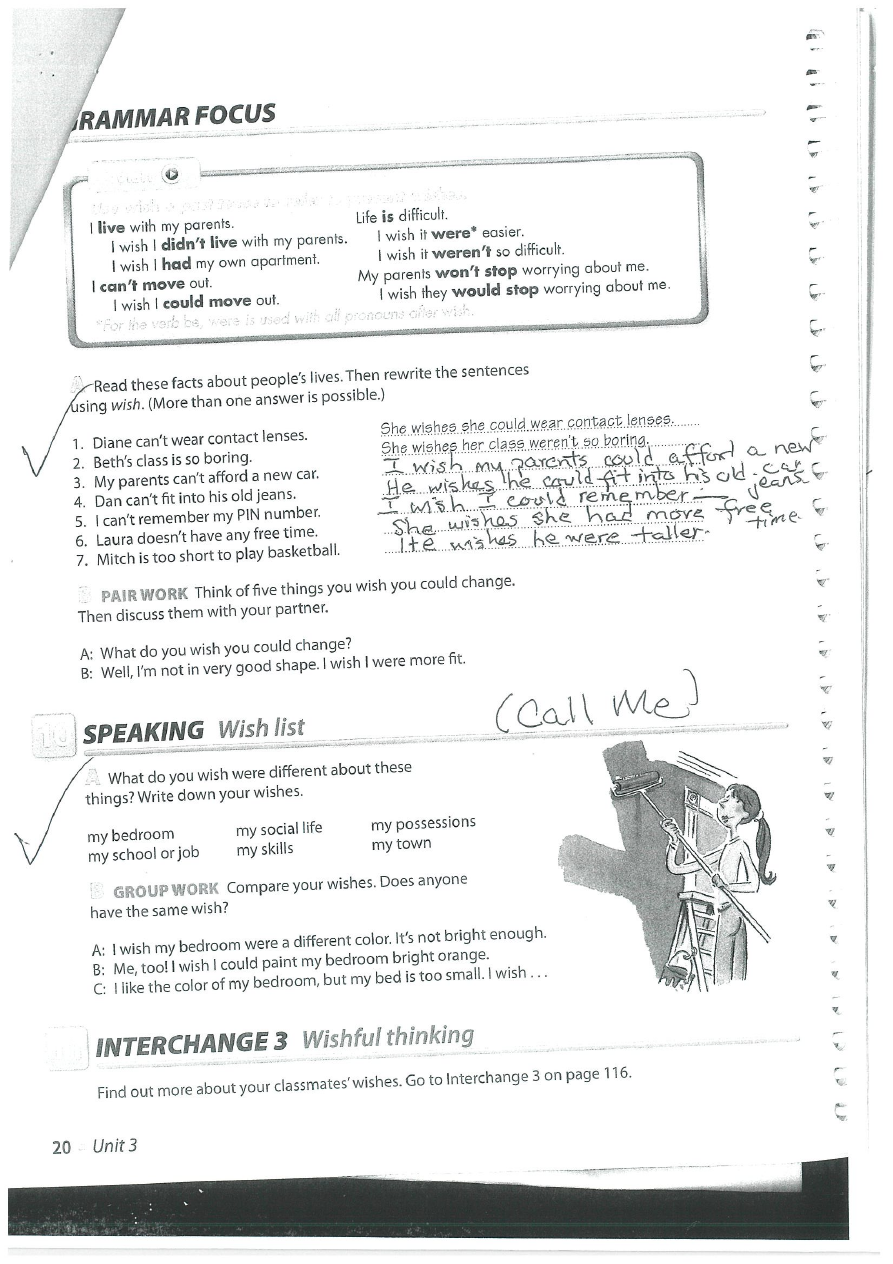 GRAMMAR FOCUS
I live with my parents.
I wish I didn't live with my parents.
I wish I had my own apartment.
I can't move out.
I wish I could move out.
Life is difficult.
I wish it were* easier.
I wish it weren't so difficult.
My parents won't stop worrying about me.
I wish they would stop worrying about me.
*For the verb be, were is used with all pronouns after wish.
A Read these facts about people's lives. Then rewrite the sentences
using wish. (More than one answer is possible.)
1. Diane can't wear contact lenses.
2. Beth's class is so boring.
3. My parents can't afford a new car.
4. Dan can't fit into his old jeans.
5. I can't remember my PIN number.
6. Laura doesn't have any free time.
7. Mitch is too short to play basketball.
She wishes she could wear contact lenses.
She wishes her class weren't so boring.
I wish my parents could afford a new car
He wishes he could fit into his old jeans.
I wish I could remember —
She wishes she had more free time
He wishes he were taller.
B PAIR WORK Think of five things you wish you could change.
Then discuss them with your partner.
A: What do you wish you could change?
B: Well, I'm not in very good shape. I wish I were more fit.
(Call Me)
10 SPEAKING Wish list
A What do you wish were different about these
things? Write down your wishes.
my bedroom my social life my possessions
my school or job my skills my town
B GROUP WORK Compare your wishes. Does anyone
have the same wish?
A: I wish my bedroom were a different color. It's not bright enough.
B: Me, too! I wish I could paint my bedroom bright orange.
C: I like the color of my bedroom, but my bed is too small. I wish . . .
INTERCHANGE 3 Wishful thinking
Find out more about your classmates' wishes. Go to Interchange 3 on page 116.
20 Unit 3